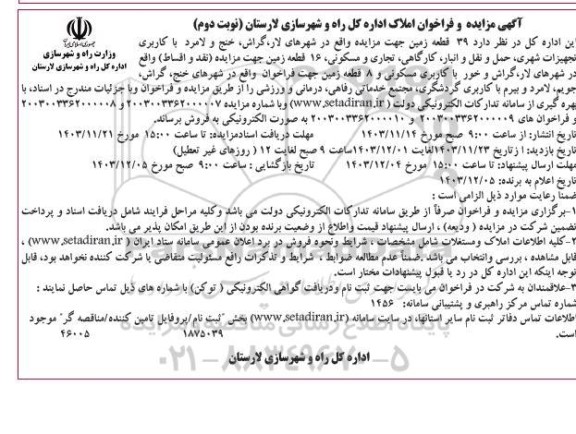 آگهی مزایده و فراخوان املاک اداره کل راه و شهرسازی لارستان (نوبت دوم)
وزارت راه و شهرسازی
اداره کل راه و شهرسازی لارستان
این اداره کل در نظر دارد ۳۹ قطعه زمین جهت مزایده واقع در شهرهای لار،گراش، خنج و لامرد با کاربری
تجهیزات شهری، حمل و نقل و انبار، کارگاهی، تجاری و مسکونی، ۱۶ قطعه زمین جهت مزایده (نقد و اقساط) واقع
در شهرهای لار،گراش و خور با کاربری مسکونی و ۸ قطعه زمین جهت فراخوان واقع در شهرهای خنج، گراش،
جویم، لامرد و بیرم با کاربری گردشگری، مجتمع خدماتی رفاهی، درمانی و ورزشی را از طریق مزایده و فراخوان وبا جزئیات مندرج در اسناد، با
بهره گیری از سامانه تدارکات الکترونیکی دولت (www.setadiran.ir) وبا شماره مزایده ۲۰۰۳۰۰۳۳۶۲۰۰۰۰۰۷ و ۲۰۰۳۰۰۳۳۶۲۰۰۰۰۰۸
و فراخوان های ۲۰۰۳۰۰۳۳۶۲۰۰۰۰۰۹ و ۲۰۰۳۰۰۳۳۶۲۰۰۰۰۱۰ به صورت الکترونیکی به فروش برساند.
تاریخ انتشار: از ساعت ۹:۰۰ صبح مورخ ۱۴۰۳/۱۱/۱۴ مهلت دریافت اسنادمزایده: تا ساعت ۱۵:۰۰ مورخ ۱۴۰۳/۱۱/۲۱
تاریخ بازدید: از تاریخ ۱۴۰۳/۱۱/۲۳لغایت ۱۴۰۳/۱۲/۰۱ساعت ۹ صبح لغایت ۱۲ (روزهای غیر تعطیل)
مهلت ارسال پیشنهاد: تا ساعت ۱۵:۰۰ مورخ ۱۴۰۳/۱۲/۰۴ تاریخ بازگشایی : ساعت ۹:۰۰ صبح مورخ ۱۴۰۳/۱۲/۰۵
تاریخ اعلام به برنده: ۱۴۰۳/۱۲/۰۵
ضمنا رعایت موارد ذیل الزامی است :
۱-برگزاری مزایده و فراخوان صرفاً از طریق سامانه تدارکات الکترونیکی دولت می باشد وکلیه مراحل فرایند شامل دریافت اسناد و پرداخت
تضمین شرکت در مزایده ( ودیعه) ، ارسال پیشنهاد قیمت واطلاع از وضعیت برنده بودن از این طریق امکان پذیر می باشد.
۲-کلیه اطلاعات املاک ومستغلات شامل مشخصات ، شرایط ونحوه فروش در برد اعلان عمومی سامانه ستاد ایران ( www.setadiran.ir) ،
قابل مشاهده ، بررسی وانتخاب می باشد .ضمناً عدم مطالعه ضوابط ، شرایط و تذکرات رافع مسئولیت متقاضی یا شرکت کننده نخواهد بود، قابل
توجه اینکه این اداره کل در رد یا قبول پیشنهادات مختار است.
۳-علاقمندان به شرکت در فراخوان می بایست جهت ثبت نام ودریافت گواهی الکترونیکی ( توکن) با شماره های ذیل تماس حاصل نمایند :
شماره تماس مرکز راهبری و پشتیبانی سامانه: ۱۴۵۶
اطلاعات تماس دفاتر ثبت نام سایر استانها، در سایت سامانه (www.setadiran.ir) بخش "ثبت نام/پروفایل تامین کننده/مناقصه گر" موجود
است. ۱۸۷۵۰۳۹ ۴۶۰۰۵
اداره کل راه و شهرسازی لارستان
۰۲۱-۸۸۳۴۹۶۷۰-۵